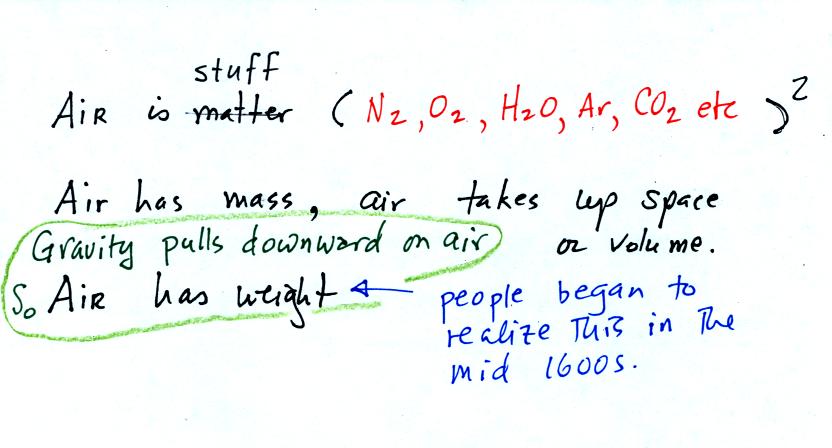 stuff
Air is matter (N2, O2, H2O, Ar, CO2 etc)2
Air has mass, air takes up space
or volume.
Gravity pulls downward on air
So Air has weight
people began to
realize this in the
mid 1600s.